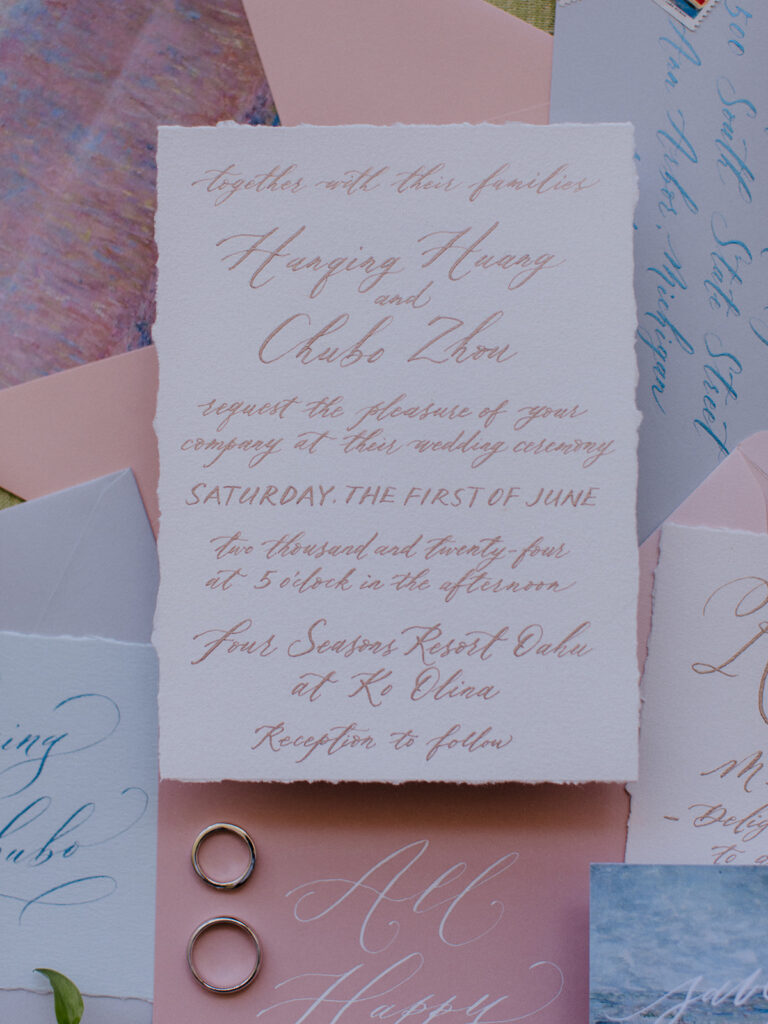 together with their families
Hanqing Huang
and
Chubo Zhou
request the pleasure of your
company at their wedding ceremony
SATURDAY. THE FIRST OF JUNE
two thousand and twenty-four
at 5 o'clock in the afternoon
Four Seasons Resort Oahu
at Ko Olina
Reception to follow
500 South State Street
Ann Arbor, Michigan
ing
hubo
All
Happy
M
- Delig
to a
sav